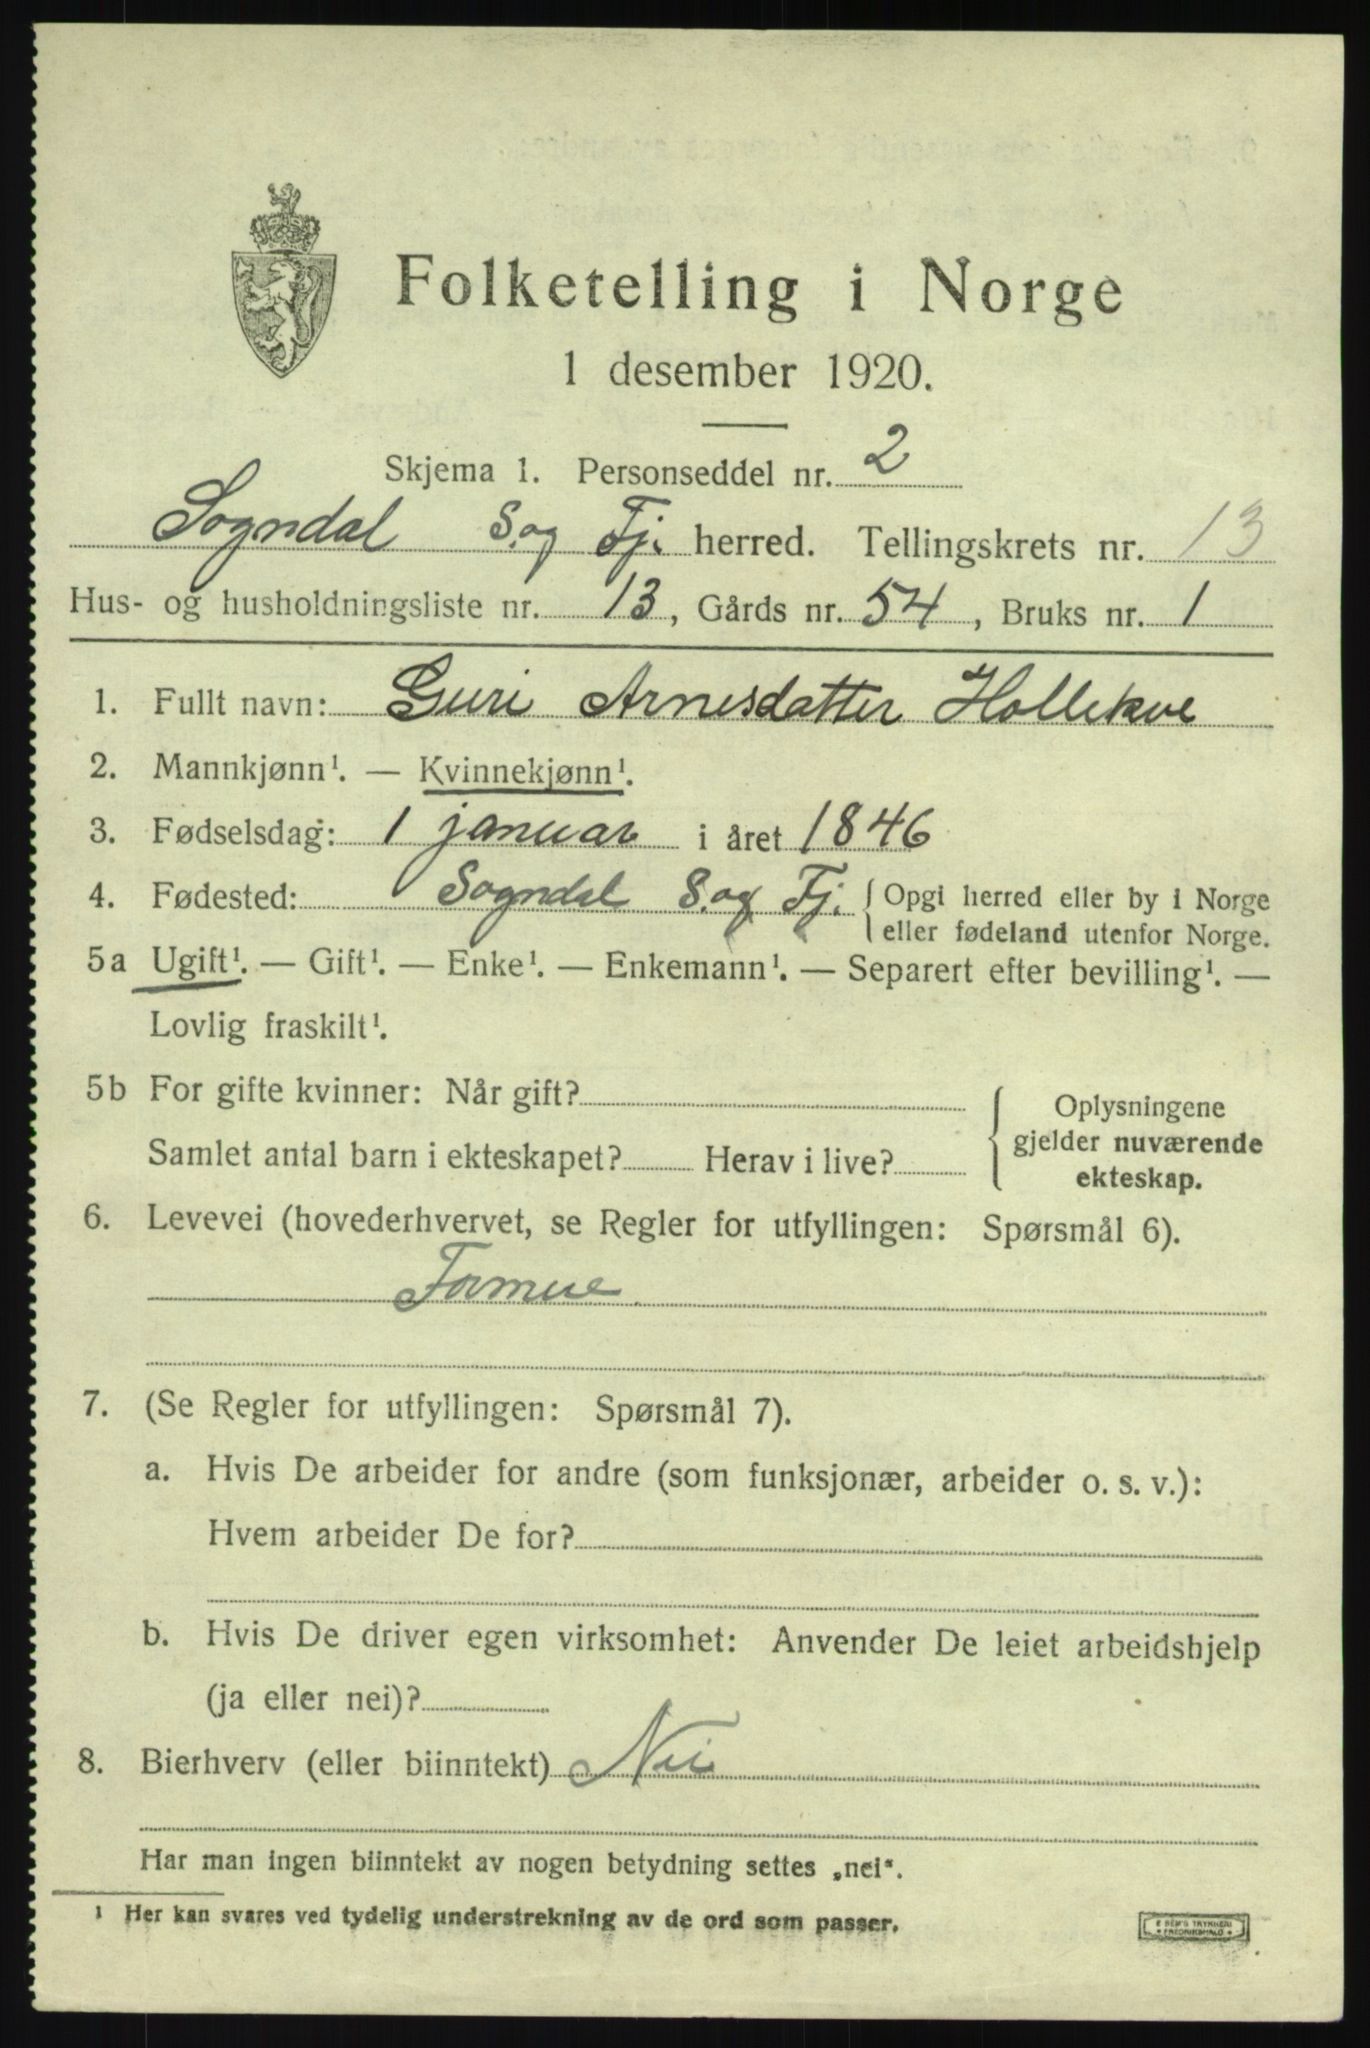 Folketelling i Norge
1 desember 1920.
Skjema 1. Personseddel nr. 2
Sogndal S. og Fj. herred. Tellingskrets nr. 13
Hus- og husholdningsliste nr. 13, Gårds nr. 54, Bruks nr. 1
1. Fullt navn: Guri Arnesdatter Hollekve
2. Mannkjønn¹. — Kvinnekjønn¹.
3. Fødselsdag: 1 januar i året 1846
4. Fødested: Sogndal S. og Fj. { Opgi herred eller by i Norge
eller fødeland utenfor Norge.
5a Ugift¹. — Gift¹. — Enke¹. — Enkemann¹. — Separert efter bevilling¹. —
Lovlig fraskilt¹.
5b For gifte kvinner: Når gift?
Samlet antal barn i ekteskapet? Herav i live?
Oplysningene
gjelder nuværende
ekteskap.
6. Levevei (hovederhvervet, se Regler for utfyllingen: Spørsmål 6).
Formue
7. (Se Regler for utfyllingen: Spørsmål 7).
a. Hvis De arbeider for andre (som funksjonær, arbeider o. s. v.):
Hvem arbeider De for?
b. Hvis De driver egen virksomhet: Anvender De leiet arbeidshjelp
(ja eller nei)?
8. Bierhverv (eller biinntekt) Nei
Har man ingen biinntekt av nogen betydning settes „nei“.
¹ Her kan svares ved tydelig understrekning av de ord som passer.